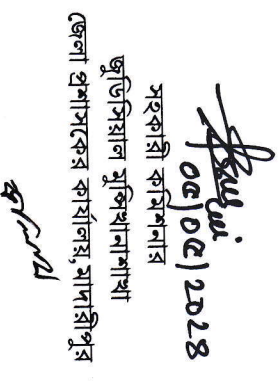 ০৫|০৫|২০২৪
সহকারী কমিশনার
জুডিসিয়াল মুন্সিখানা শাখা
জেলা প্রশাসকের কার্যালয়, মাদারীপুর